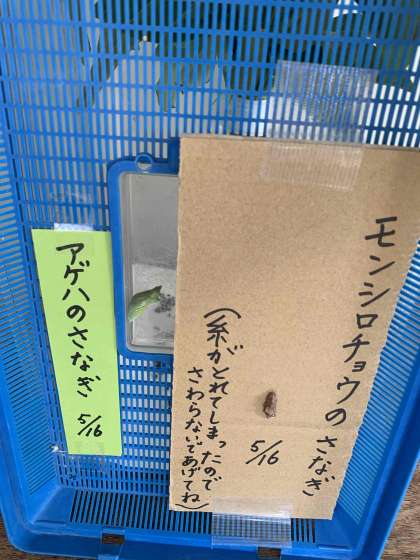 モンシロチョウのさなぎ
5/16
(糸がとれてしまったので
さわらないであげてね)
アゲハのさなぎ 5/16